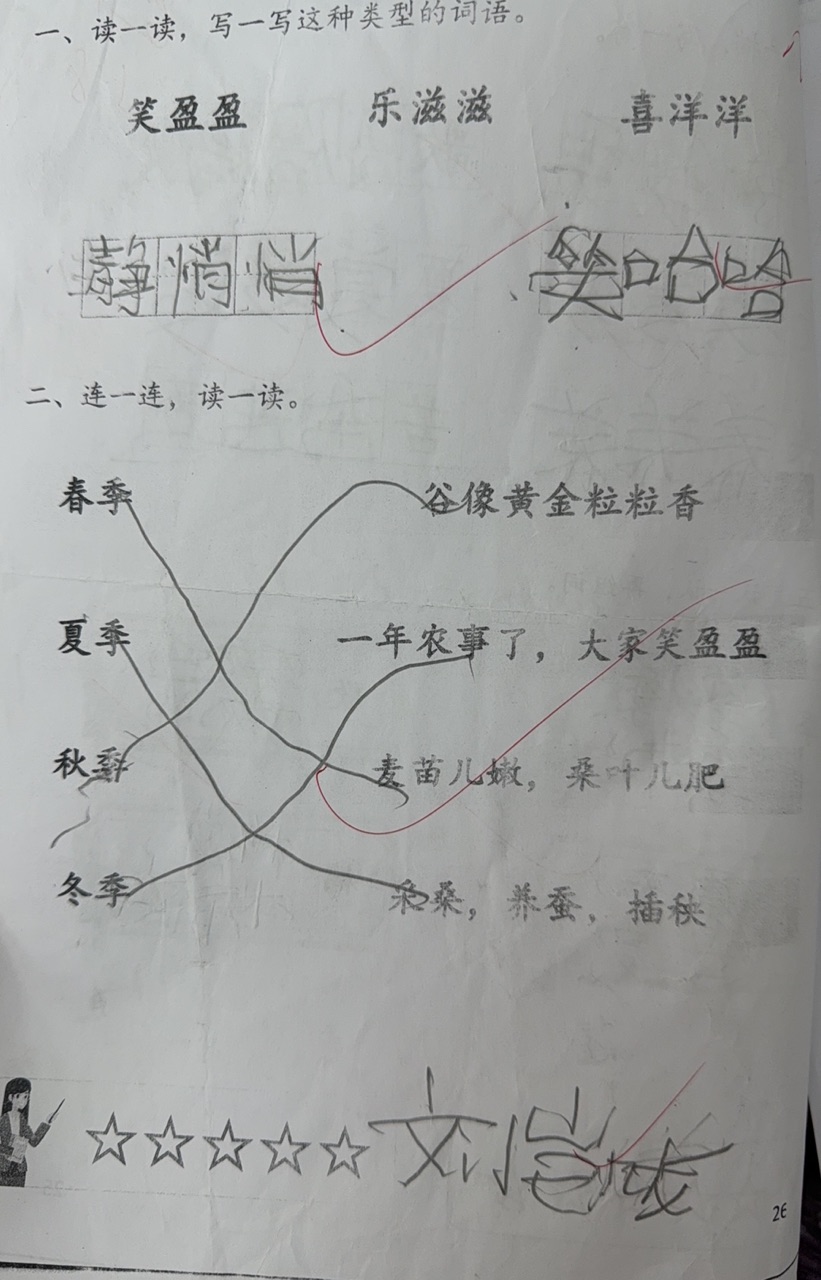 一、读一读，写一写这种类型的词语。
笑盈盈 乐滋滋 喜洋洋
静悄悄 笑哈哈
二、连一连，读一读。
春季 谷像黄金粒粒香
夏季 一年农事了，大家笑盈盈
秋季 麦苗儿嫩，桑叶儿肥
冬季 采桑，养蚕，插秧
26